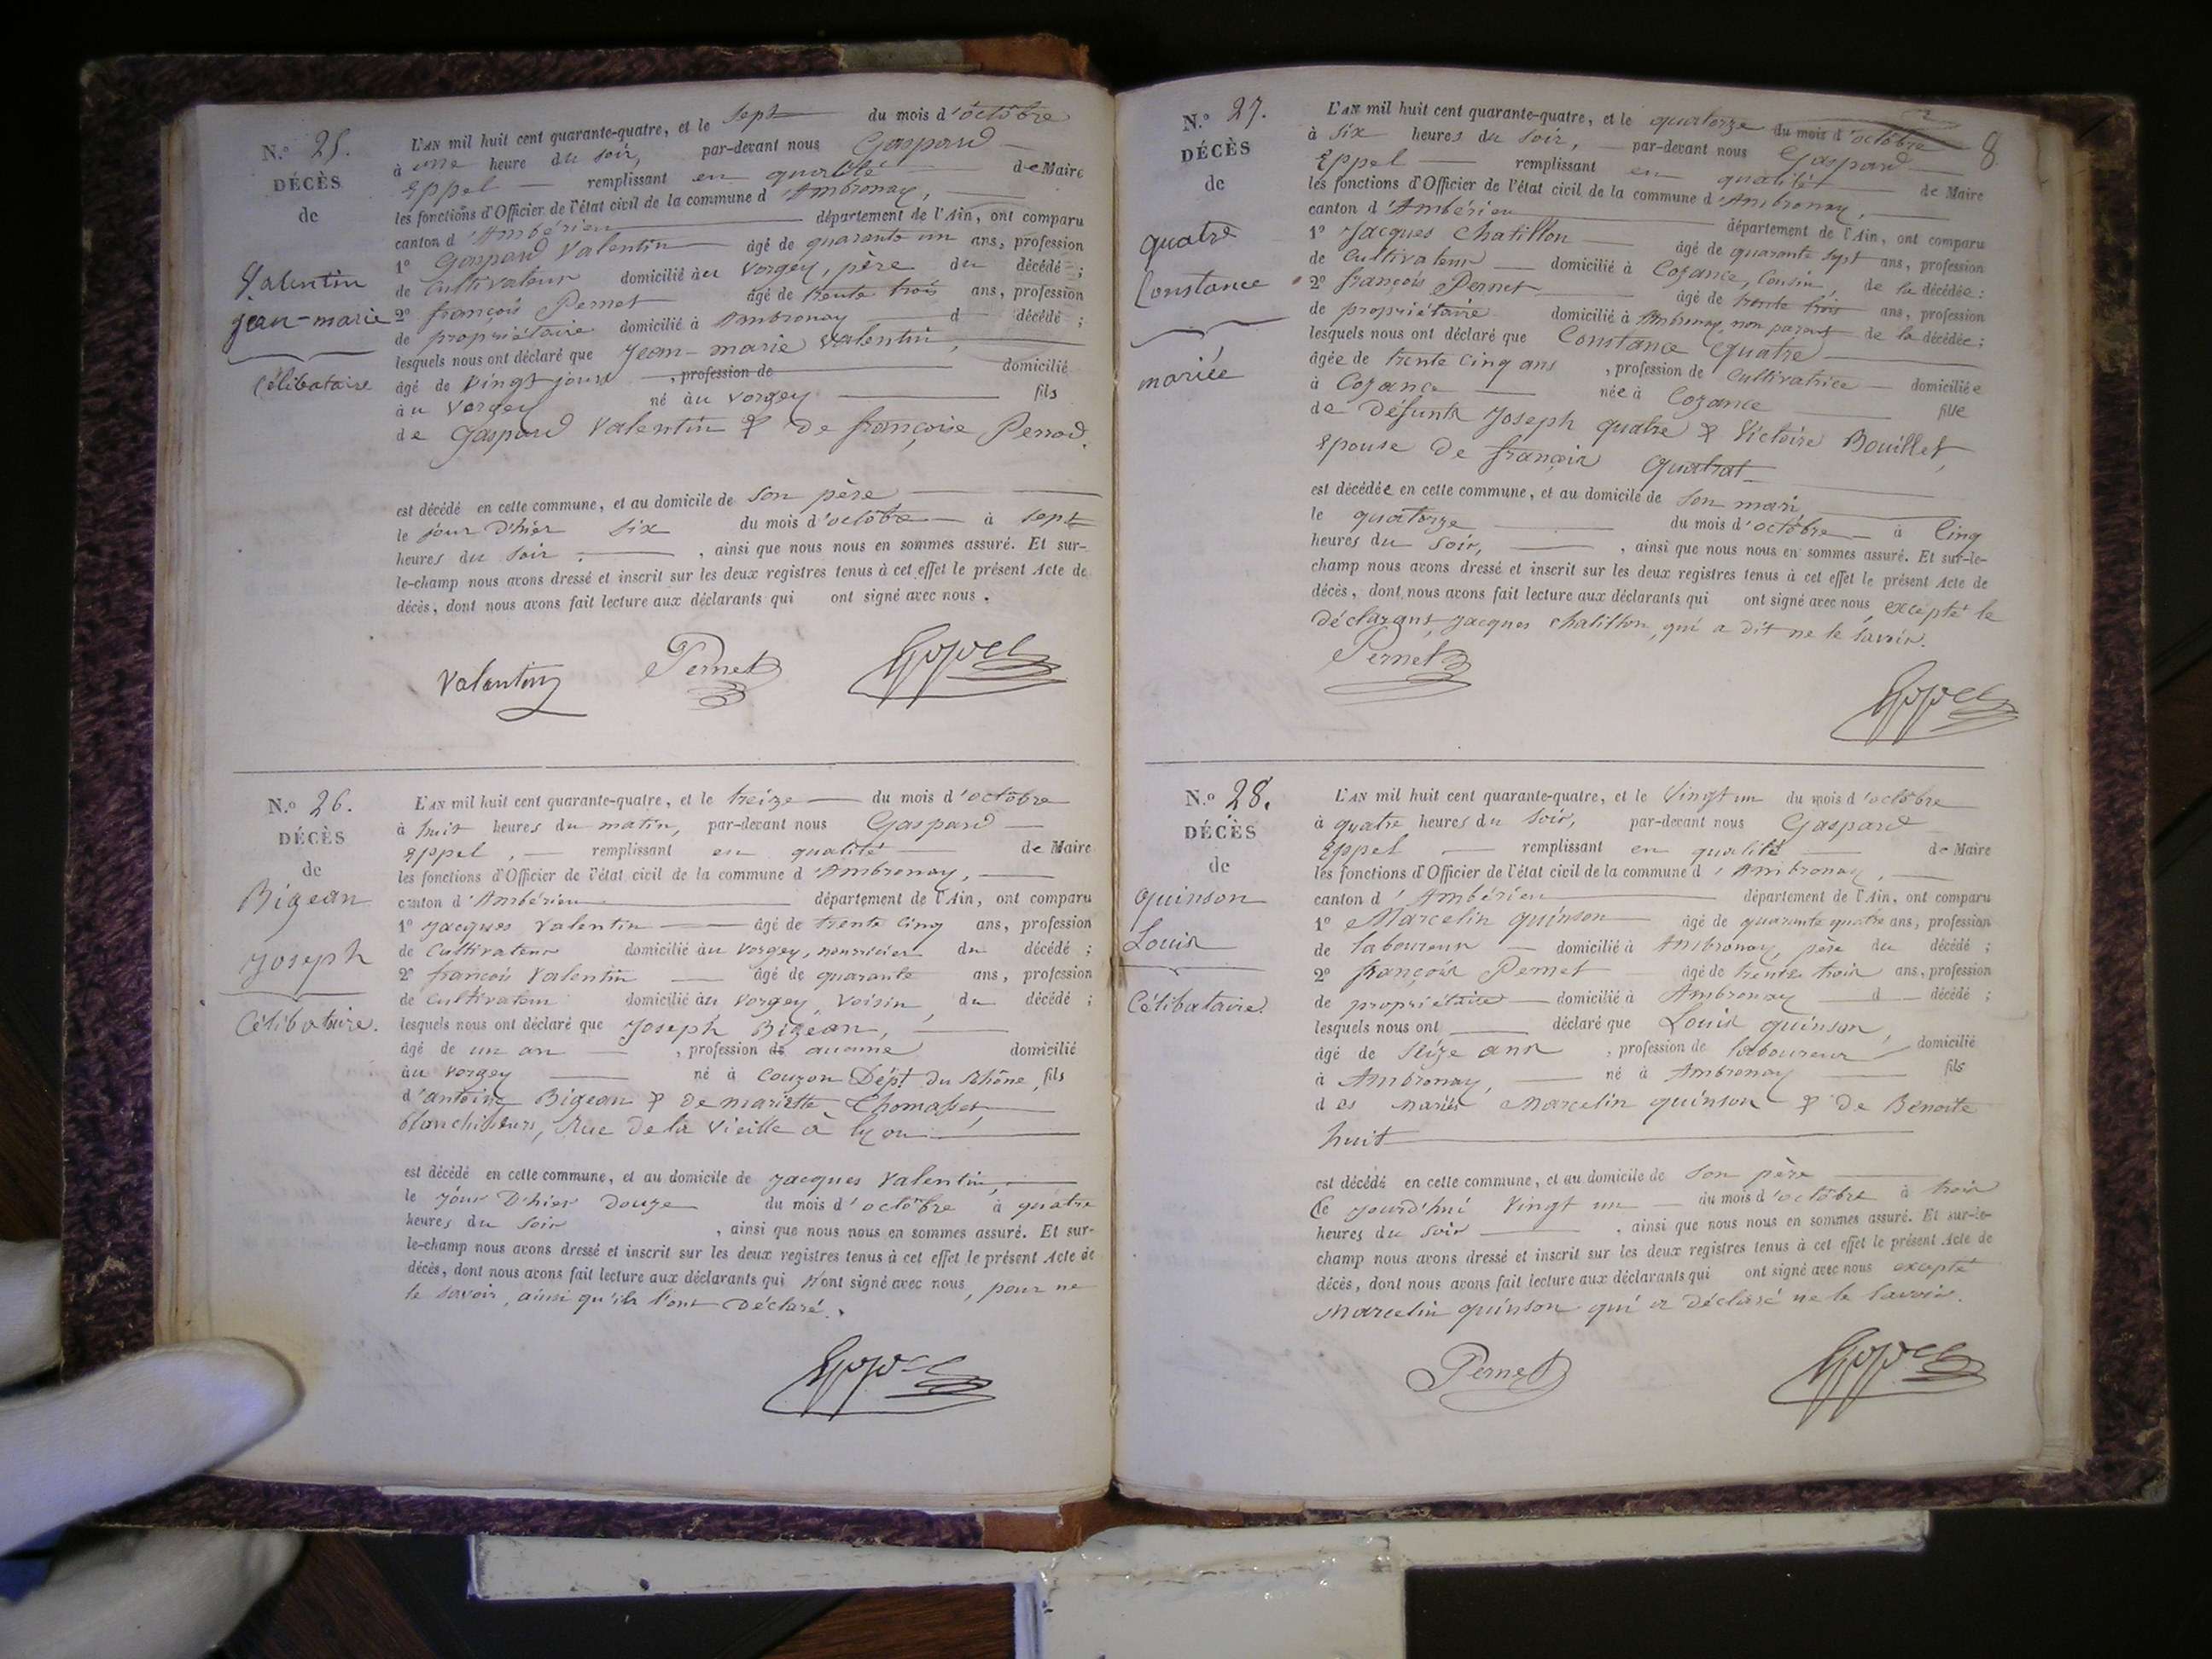 N.o 25.
DÉCÈS
de
Valentin
jean-marie
Célibataire
L'AN mil huit cent quarante-quatre, et le sept du mois d'octobre
à une heure du soir, par-devant nous Gaspard
Eppel remplissant en qualité de Maire
les fonctions d'Officier de l'état civil de la commune d'Ambronay,
canton d'Ambérieu département de l'Ain, ont comparu
1o Gaspard Valentin âgé de quarante un ans, profession
de Cultivateur domicilié au Vorgey, père du décédé ;
2o françois Pernet âgé de trente trois ans, profession
de propriétaire domicilié à Ambronay d décédé ;
lesquels nous ont déclaré que Jean-marie Valentin,
âgé de Vingt jours , profession de domicilié
au Vorgey né au Vorgey fils
de Gaspard Valentin & de françoise Perrod.
est décédé en cette commune, et au domicile de son père
le jour d'hier six du mois d'octobre à sept
heures du soir , ainsi que nous nous en sommes assuré. Et sur-
le-champ nous avons dressé et inscrit sur les deux registres tenus à cet effet le présent Acte de
décès, dont nous avons fait lecture aux déclarants qui ont signé avec nous.
Valentin Pernet Eppel
N.o 26.
DÉCÈS
de
Bigean
Joseph
Célibataire.
L'AN mil huit cent quarante-quatre, et le treize du mois d'octobre
à huit heures du matin, par-devant nous Gaspard
Eppel, remplissant en qualité de Maire
les fonctions d'Officier de l'état civil de la commune d'Ambronay,
canton d'Ambérieu département de l'Ain, ont comparu
1o Jacques Valentin âgé de trente cinq ans, profession
de Cultivateur domicilié au Vorgey, nourricier du décédé ;
2o françois Valentin âgé de quarante ans, profession
de Cultivateur domicilié au Vorgey, Voisin, du décédé ;
lesquels nous ont déclaré que Joseph Bigean,
âgé de un an , profession de aucune domicilié
au Vorgey né à Couzon Dépt du Rhône, fils
d'antoine Bigean & de mariette Thomasset,
blanchisseurs, Rue de la Vieille à lyon
est décédé en cette commune, et au domicile de Jacques Valentin,
le jour d'hier douze du mois d'octobre à quatre
heures du soir , ainsi que nous nous en sommes assuré. Et sur-
le-champ nous avons dressé et inscrit sur les deux registres tenus à cet effet le présent Acte de
décès, dont nous avons fait lecture aux déclarants qui n'ont signé avec nous, pour ne
le savoir, ainsi qu'ils l'ont déclaré.
Eppel
8
N.o 27.
DÉCÈS
de
quatre
Constance
mariée
L'AN mil huit cent quarante-quatre, et le quatorze du mois d'octobre
à six heures du soir, par-devant nous Gaspard
Eppel remplissant en qualité de Maire
les fonctions d'Officier de l'état civil de la commune d'Ambronay,
canton d'Ambérieu département de l'Ain, ont comparu
1o Jacques Chatillon âgé de quarante sept ans, profession
de Cultivateur domicilié à Cozance, Cousin, de la décédée ;
2o françois Pernet âgé de trente trois ans, profession
de propriétaire domicilié à Ambronay, non parent de la décédée ;
lesquels nous ont déclaré que Constance quatre
âgée de trente cinq ans , profession de Cultivatrice domiciliée
à Cozance née à Cozance fille
de défunts Joseph quatre & Victoire Bouillet,
Epouse de françois Quatrat
est décédée en cette commune, et au domicile de son mari
le quatorze du mois d'octobre à Cinq
heures du soir, , ainsi que nous nous en sommes assuré. Et sur-le-
champ nous avons dressé et inscrit sur les deux registres tenus à cet effet le présent Acte de
décès, dont nous avons fait lecture aux déclarants qui ont signé avec nous excepté le
déclarant, Jacques Chatillon, qui a dit ne le savoir.
Pernet Eppel
N.o 28.
DÉCÈS
de
quinson
Louis
Célibataire.
L'AN mil huit cent quarante-quatre, et le Vingt un du mois d'octobre
à quatre heures du soir, par-devant nous Gaspard
Eppel remplissant en qualité de Maire
les fonctions d'Officier de l'état civil de la commune d'Ambronay,
canton d'Ambérieu département de l'Ain, ont comparu
1o Marcelin quinson âgé de quarante quatre ans, profession
de laboureur domicilié à Ambronay, père du décédé ;
2o françois Pernet âgé de trente trois ans, profession
de propriétaire domicilié à Ambronay d décédé ;
lesquels nous ont déclaré que Louis quinson,
âgé de seize ans , profession de laboureur domicilié
à Ambronay, né à Ambronay fils
des mariés Marcelin quinson & de Benoite
huit
est décédé en cette commune, et au domicile de son père
le jourd'hui Vingt un du mois d'octobre à trois
heures du soir , ainsi que nous nous en sommes assuré. Et sur-le-
champ nous avons dressé et inscrit sur les deux registres tenus à cet effet le présent Acte de
décès, dont nous avons fait lecture aux déclarants qui ont signé avec nous excepté
Marcelin quinson qui a déclaré ne le savoir.
Pernet Eppel